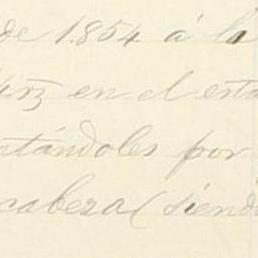 de 1854 á la
en el esta
tándoles por
cabeza (siend